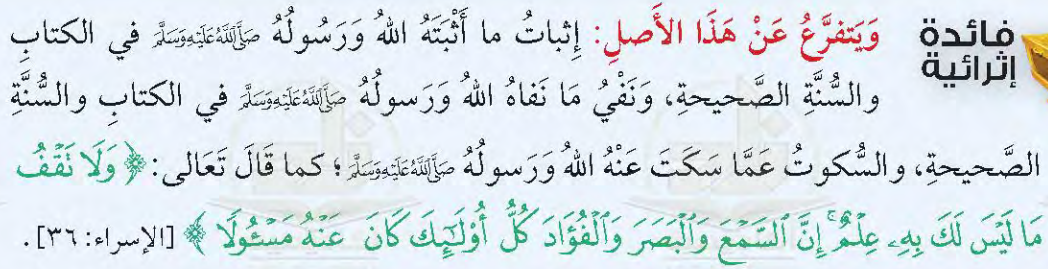 فائدة إثرائية
وَيَتفرَّعُ عَنْ هَذَا الأَصلِ: إثباتُ ما أَثْبَتَهُ اللهُ وَرَسُولُهُ ﷺ في الكتابِ
والسُّنَّةِ الصَّحيحةِ، وَنَفْيُ مَا نَفاهُ اللهُ وَرَسولُهُ ﷺ في الكتابِ والسُّنَّةِ
الصَّحيحةِ، والسُّكوتُ عَمَّا سَكَتَ عَنْهُ اللهُ وَرَسولُهُ ﷺ؛ كما قَالَ تَعَالى: ﴿وَلَا تَقۡفُ
مَا لَيۡسَ لَكَ بِهِۦ عِلۡمٌۚ إِنَّ ٱلسَّمۡعَ وَٱلۡبَصَرَ وَٱلۡفُؤَادَ كُلُّ أُوْلَٰٓئِكَ كَانَ عَنۡهُ مَسۡـُٔولٗا﴾ [الإسراء: ٣٦].